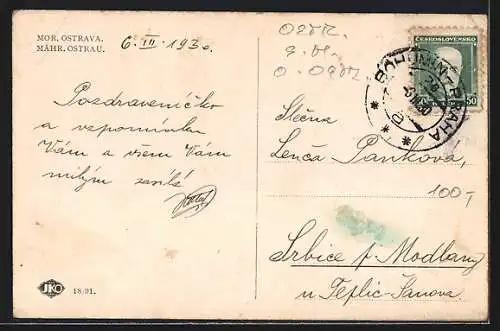 MOR. OSTRAVA.
MÄHR. OSTRAU.
6. III. 1930.
Pozdraveníčko
a vzpomínku
Vám a všem Vám
milým zasílá
JKO
18/91.
ČESKOSLOVENSKO
50
BOHUMÍN-PRAHA
Slečna
Lenča Pánková,
100,-
Srbice p. Modlany
u Teplic-Šanova.